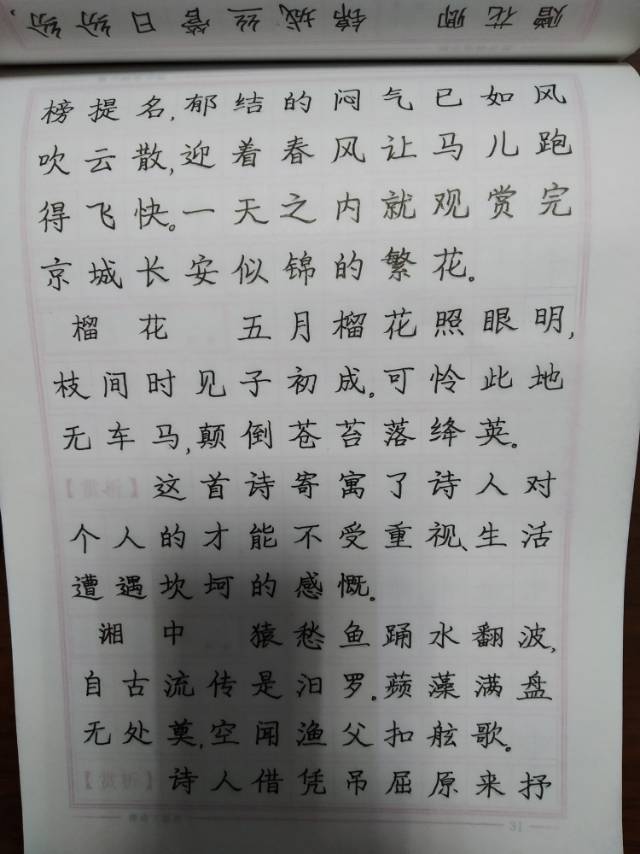 赠花卿 锦城丝管日纷纷,
榜提名,郁结的闷气已如风
吹云散,迎着春风让马儿跑
得飞快。一天之内就观赏完
京城长安似锦的繁花。
榴花 五月榴花照眼明,
枝间时见子初成。可怜此地
无车马,颠倒苍苔落绛英。
【赏析】这首诗寄寓了诗人对
个人的才能不受重视、生活
遭遇坎坷的感慨。
湘中 猿愁鱼踊水翻波,
自古流传是汨罗。蘋藻满盘
无处奠,空闻渔父扣舷歌。
【赏析】诗人借凭吊屈原来抒
31